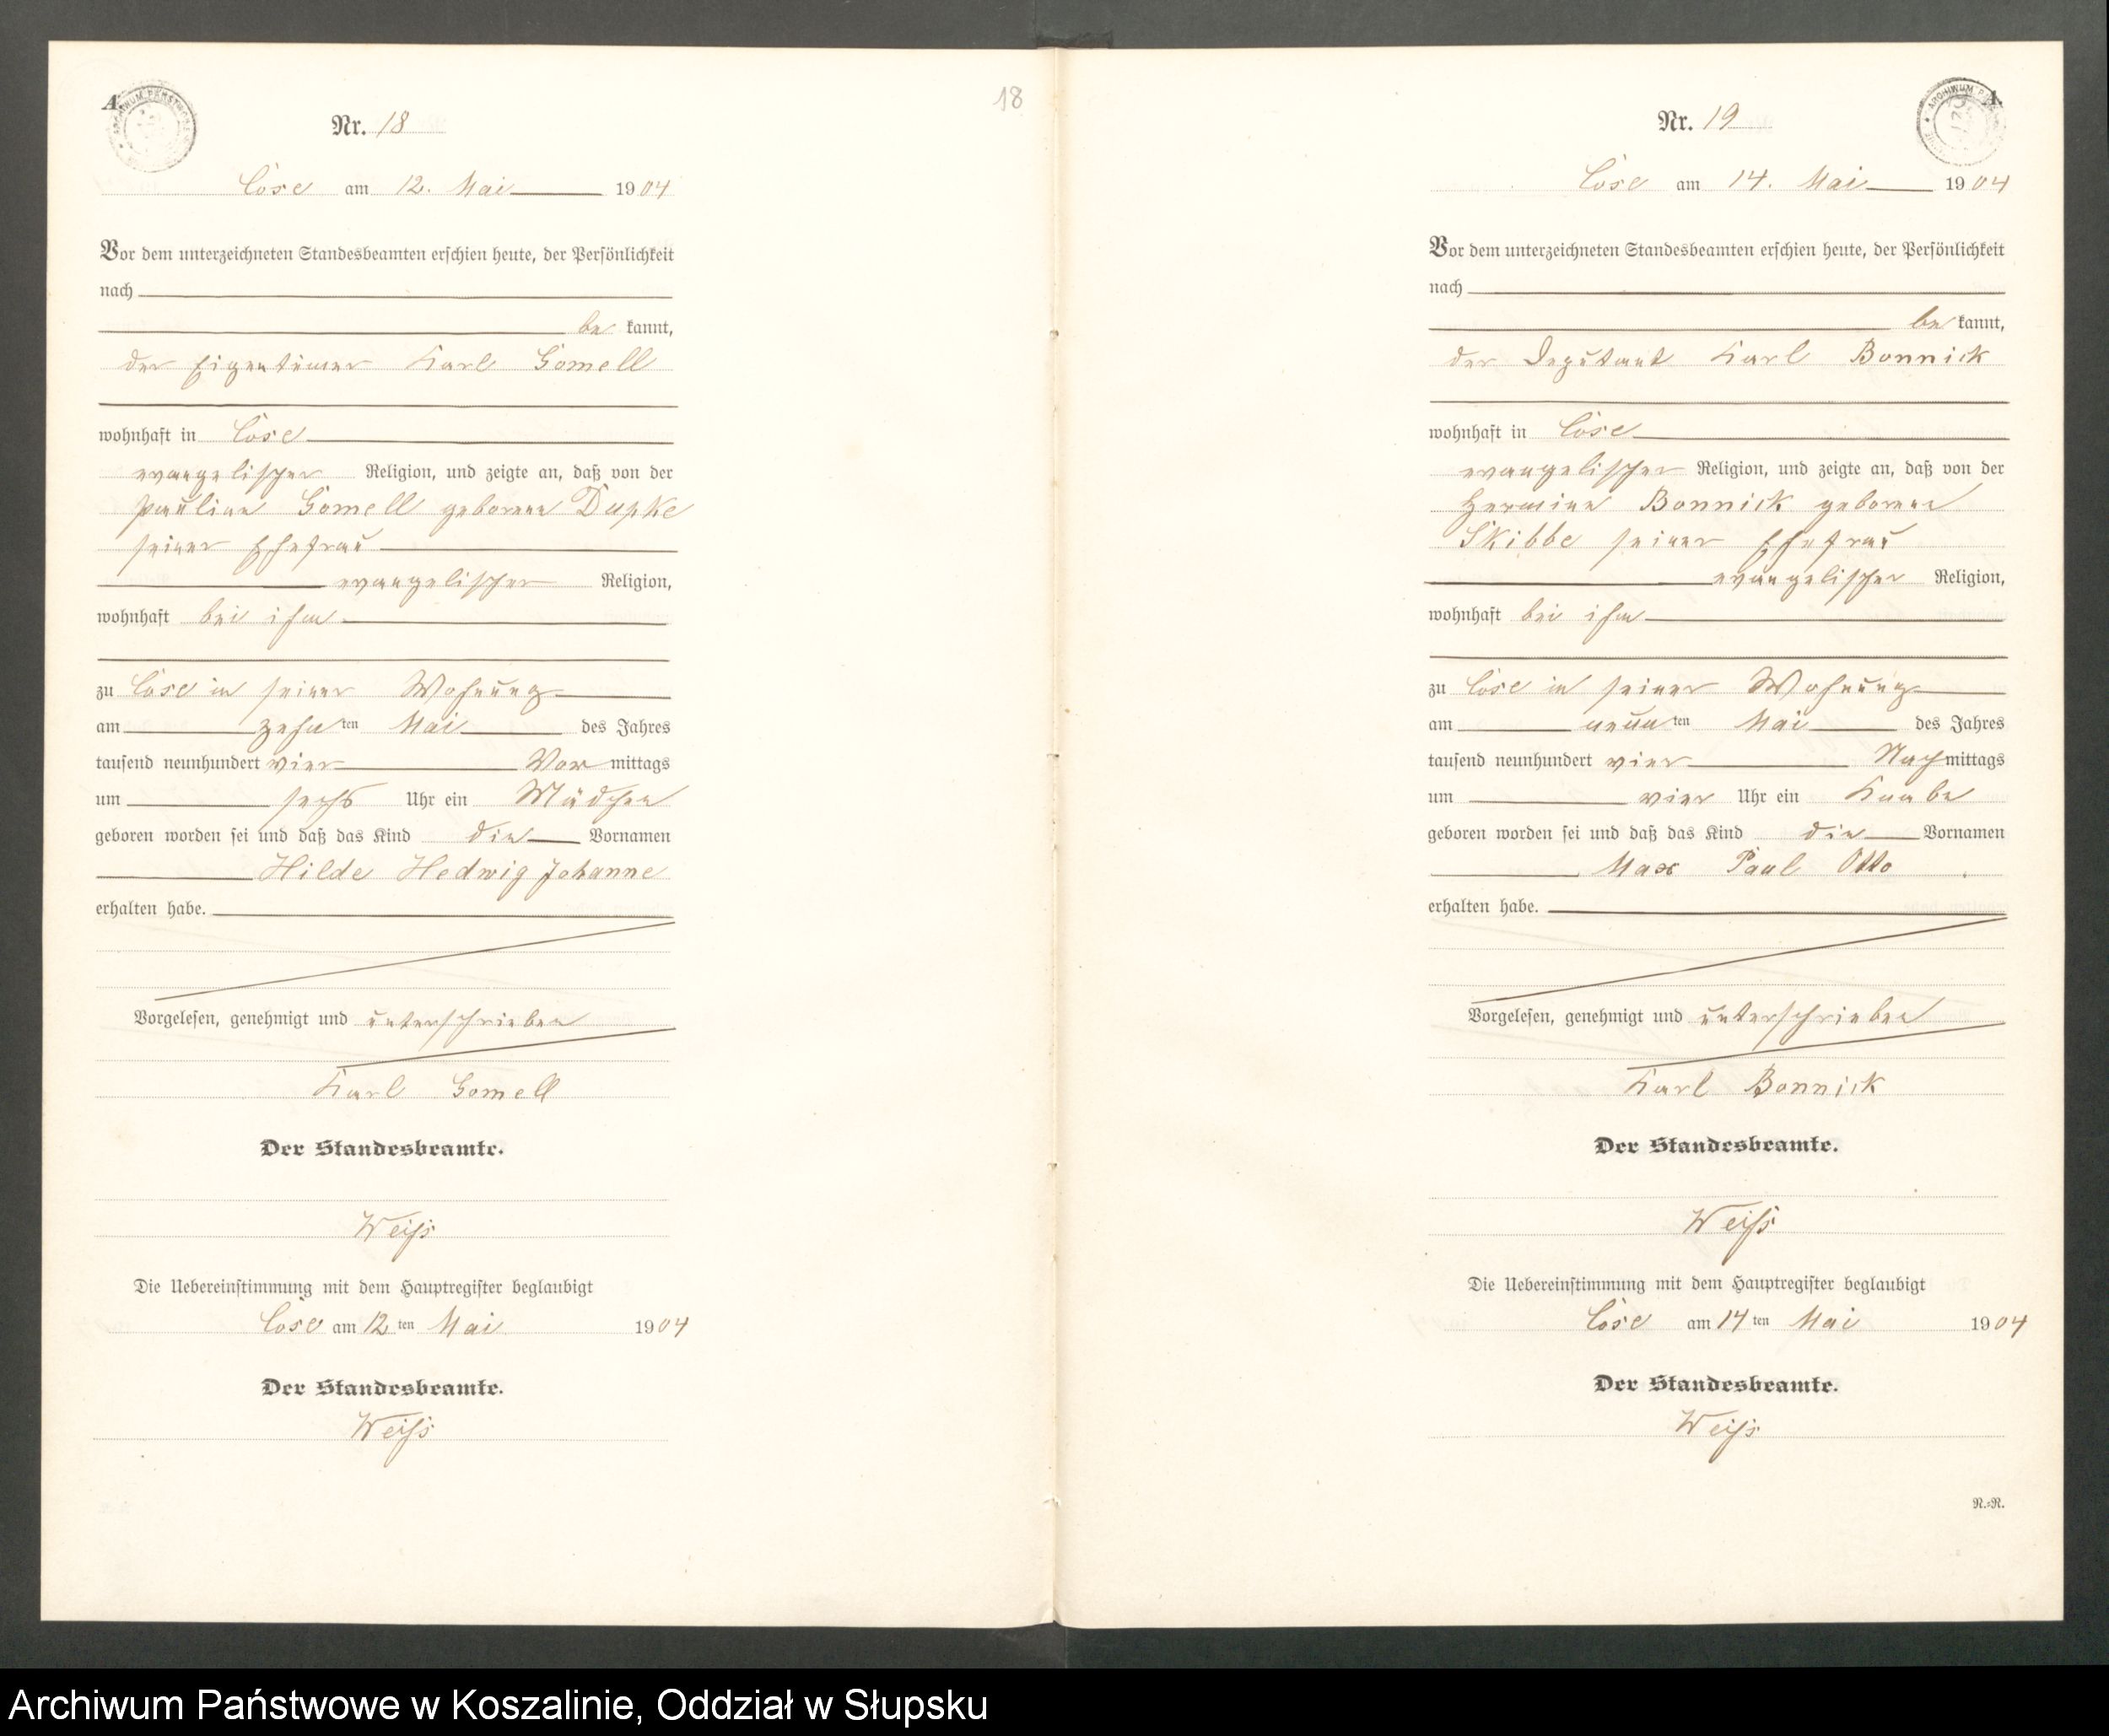 A.
ARCHIWUM PAŃSTWOWE
Nr. 18
18
Cöse am 12. Mai 1904
Vor dem unterzeichneten Standesbeamten erschien heute, der Persönlichkeit
nach
be kannt,
der Eigentümer Karl Gomell
wohnhaft in Cöse
evangelischer Religion, und zeigte an, daß von der
Pauline Gomell geborene Dupke
seiner Ehefrau
evangelischer Religion,
wohnhaft bei ihm
zu Cöse in seiner Wohnung
am zehn ten Mai des Jahres
tausend neunhundert vier Vor mittags
um sechs Uhr ein Mädchen
geboren worden sei und daß das Kind die Vornamen
Hilde Hedwig Johanne
erhalten habe.
Vorgelesen, genehmigt und unterschrieben
Karl Gomell
Der Standesbeamte.
Weiß
Die Uebereinstimmung mit dem Hauptregister beglaubigt
Cöse am 12 ten Mai 1904
Der Standesbeamte.
Weiß
ARCHIWUM
Nr. 19
Cöse am 14. Mai 1904
Vor dem unterzeichneten Standesbeamten erschien heute, der Persönlichkeit
nach
be kannt,
der Deputant Karl Bonnick
wohnhaft in Cöse
evangelischer Religion, und zeigte an, daß von der
Hermine Bonnick geborene
Skibbe seiner Ehefrau
evangelischer Religion,
wohnhaft bei ihm
zu Cöse in seiner Wohnung
am neun ten Mai des Jahres
tausend neunhundert vier Nach mittags
um vier Uhr ein Knabe
geboren worden sei und daß das Kind die Vornamen
Max Paul Otto
erhalten habe.
Vorgelesen, genehmigt und unterschrieben
Karl Bonnick
Der Standesbeamte.
Weiß
Die Uebereinstimmung mit dem Hauptregister beglaubigt
Cöse am 14 ten Mai 1904
Der Standesbeamte.
Weiß
N.=R.
Archiwum Państwowe w Koszalinie, Oddział w Słupsku